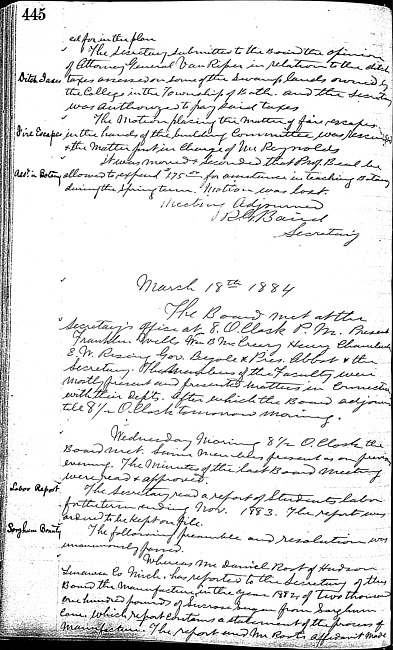 445
ed for in the plan
The Secretary submitted to the Board the opinion
of Attorney General Van Riper in relation to the ditch
Ditch Taxes taxes assessed on some of the Swamp lands owned by
the College in the Township of Bath. and the Secretary
was authorized to pay said taxes
The Motion placing the Matter of fire escapes
Fire Escapes in the hands of the building Committee, was rescinded
& the Matter put in charge of Mr Reynolds
it was moved & seconded that Prof. Beal be
Asst in Botany allowed to expend $75 00 for assistance in teaching Botany
during the Spring term. Motion was lost.
Meeting Adjourned
R. G. Baird
Secretary
March 18th 1884
The Board met at the
Secretary's office at 8. O.Clock P.M. Present
Franklin Wells Wm B McCreery Henry Chamberlain
E. W. Rising Gov Begole & Pres. Abbot & the
Secretary. The Members of the Faculty were
mostly present and presented matters in connection
with their Depts. After which the Board adjourned
till 8 1/2 O.Clock tomorrow morning.
Wednesday Morning 8 1/2 O.Clock the
Board met. Same Members present as on previous
evening. The Minutes of the last Board Meeting
were read & approved.
Labor Report The Secretary read a report of Students labor
for the term ending Nov. 1883. The report was
ordered to be kept on file.
Sorghum Bounty The following preamble and resolution was
unanimously passed.
Whereas Mr Daniel Root of Hudson
Lenawee Co Mich. has reported to the Secretary of this
Board the Manufacture in the year 1882 of two thousand
one hundred pounds of Sucrose sugar from Sorghum
Cane. which report contains a statement of the process of
Manufacture. The report and Mr Roots affidavit made